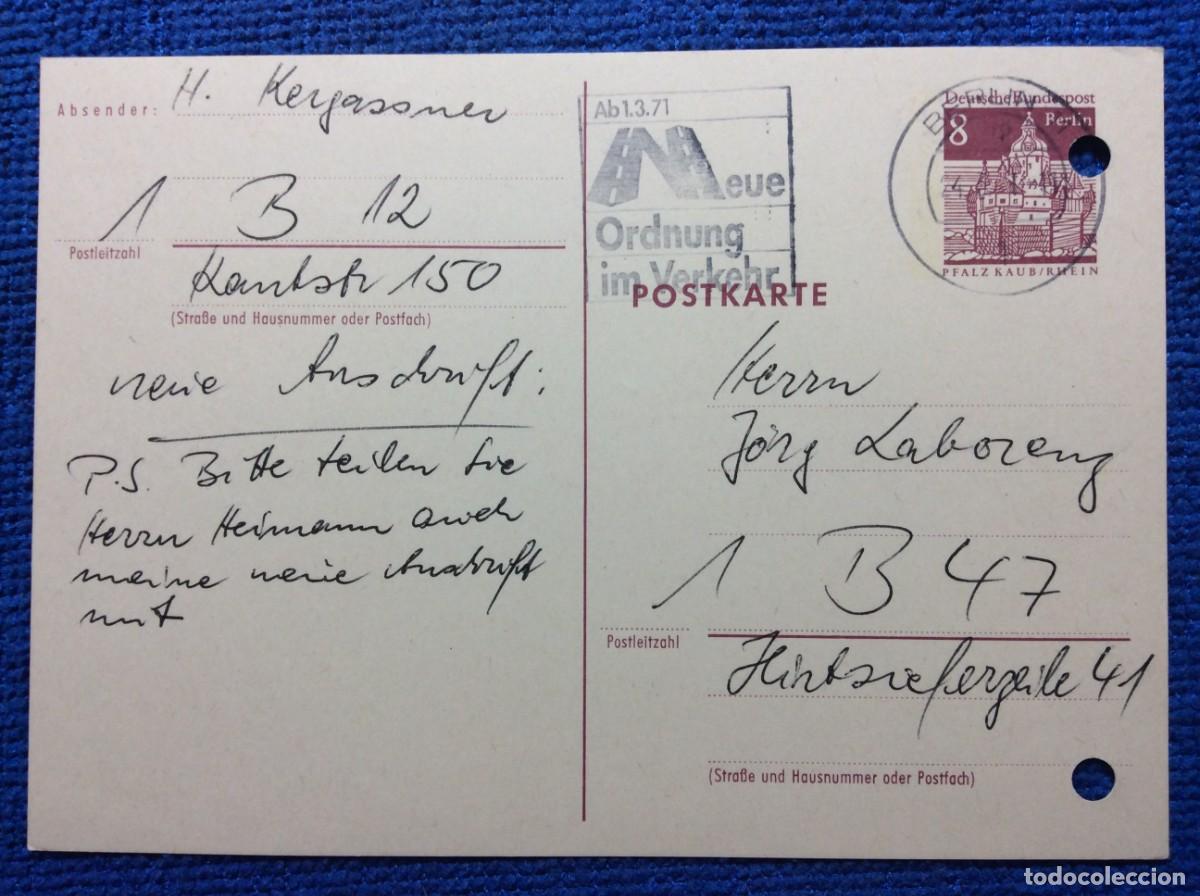 Absender: H. Kergassner
1 B 12
Postleitzahl
Kantstr 150
(Straße und Hausnummer oder Postfach)
neue Anschrift:
P.S. Bitte teilen Sie
Herrn Heimann auch
meine neue Anschrift
mit
Ab 1.3.71
Neue
Ordnung
im Verkehr
POSTKARTE
BERLIN
Deutsche Bundespost
8 Berlin
PFALZ KAUB/RHEIN
Herrn
Jörg Laborenz
1 B 47
Postleitzahl
41
(Straße und Hausnummer oder Postfach)
todocoleccion.net